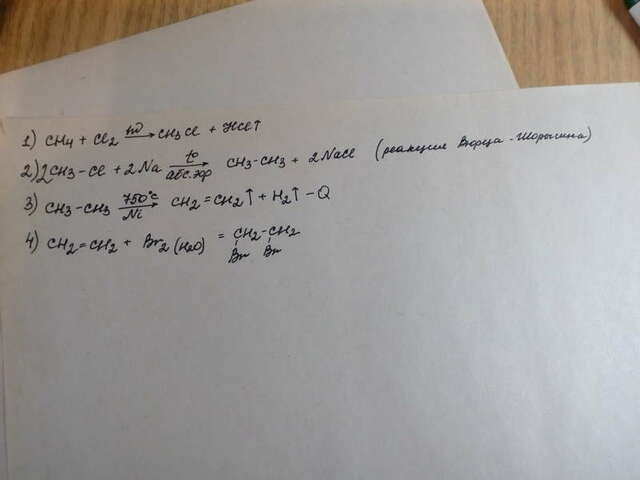 1) CH4 + Cl2 hν→ CH3Cl + HCl↑
2) 2CH3-Cl + 2Na t°→ абс. эфр CH3-CH3 + 2NaCl (реакция Вюрца-Шорыгина)
3) CH3-CH3 750°C→ Ni CH2=CH2↑ + H2↑ - Q
4) CH2=CH2 + Br2 (H2O) = CH2-CH2
Br Br